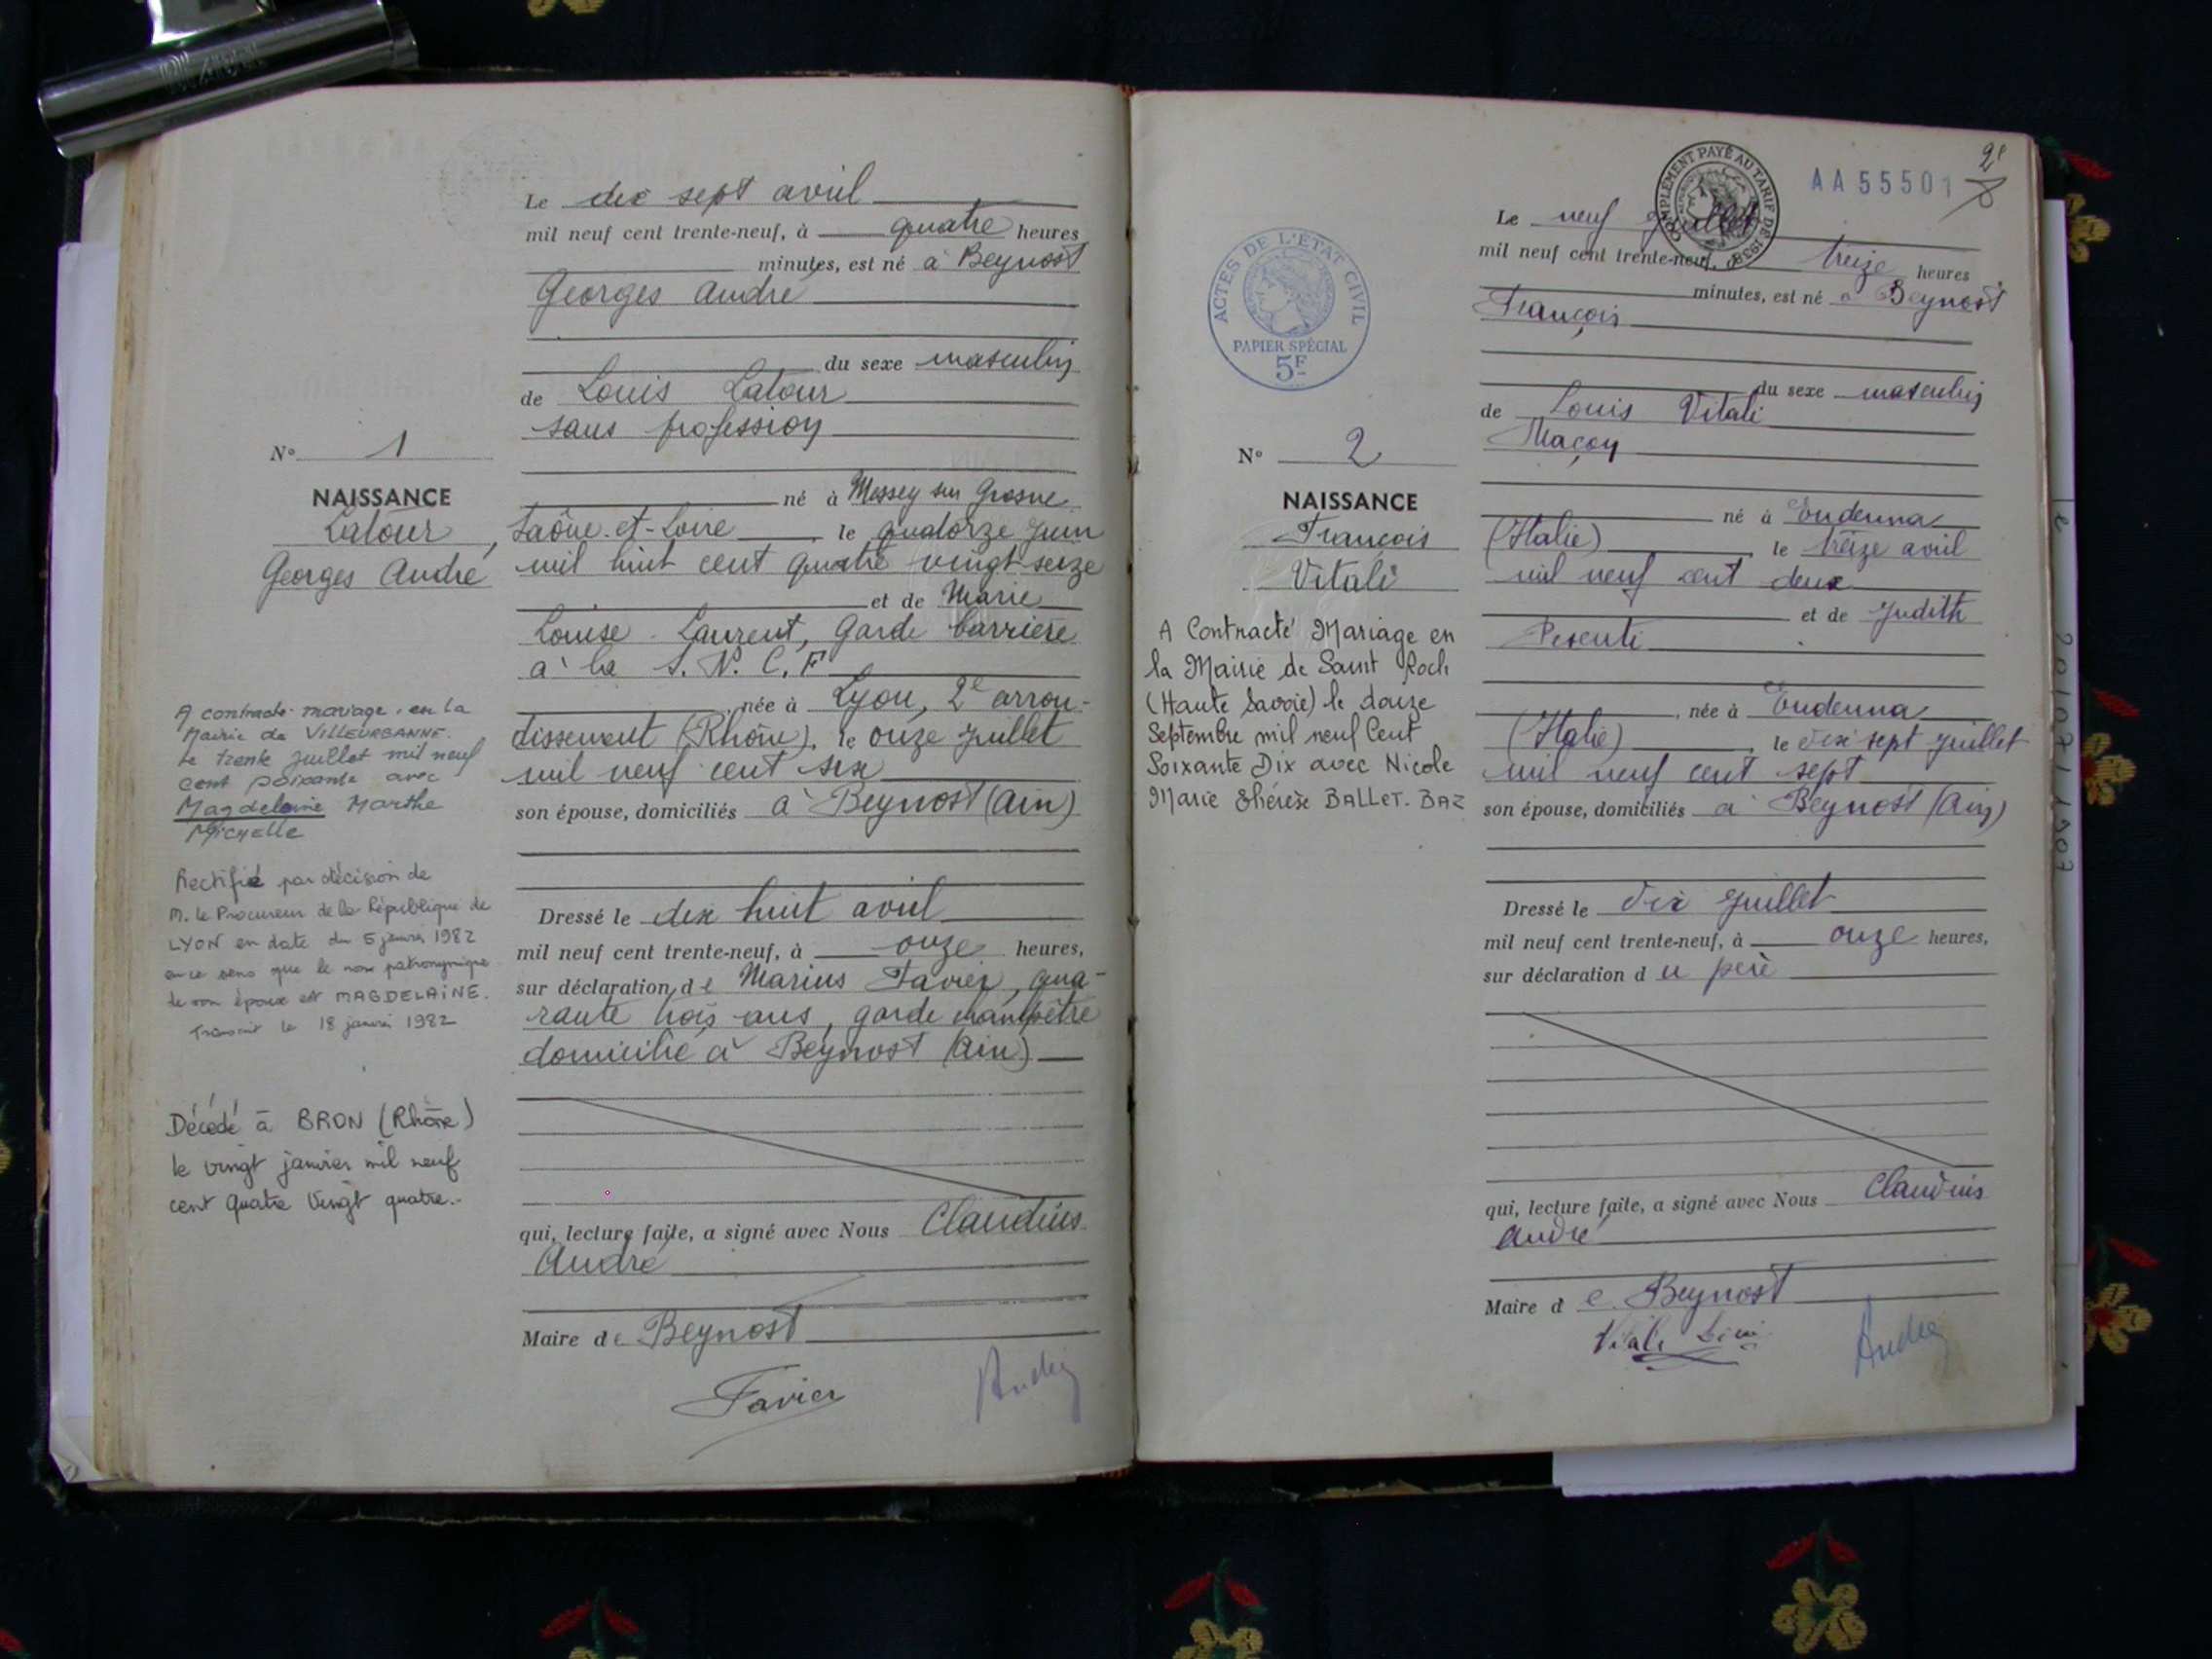 Le dix sept avril
mil neuf cent trente-neuf, à quatre heures
minutes, est né à Beynost
Georges André
du sexe masculin
de Louis Latour
sans profession
né à Messey sur Grosne
Saône-et-Loire, le quatorze juin
mil huit cent quatre vingt seize
et de Marie
Louise Laurent, Garde barrière
à la S.N.C.F
, née à Lyon, 2e arron-
dissement (Rhône), le onze juillet
mil neuf cent six
son épouse, domiciliés à Beynost (Ain)
Dressé le dix huit avril
mil neuf cent trente-neuf, à onze heures,
sur déclaration de Marius Favier, qua-
rante trois ans, garde champêtre
domicilié à Beynost (Ain)
qui, lecture faite, a signé avec Nous Claudius
André
Maire de Beynost
Favier
N° 1
NAISSANCE
Latour,
Georges André
A contracté mariage en la
Mairie de VILLEURBANNE
le trente juillet mil neuf
cent soixante avec
Magdeleine Marthe
Michelle
Rectifié par décision de
M. le Procureur de la République de
LYON en date du 5 janvier 1982
en ce sens que le nom patronymique
de son épouse est MAGDELAINE.
Transcrit le 18 janvier 1982
Décédé à BRON (Rhône)
le vingt janvier mil neuf
cent quatre vingt quatre.-
COMPLÉMENT PAYÉ AU TARIF DE 1938
AA 55501
Le neuf juillet
mil neuf cent trente-neuf, à treize heures
minutes, est né à Beynost
François
du sexe masculin
de Louis Vitali
Maçon
né à Endenna
(Italie), le treize avril
mil neuf cent deux
et de Judith
Pesenti
, née à Endenna
(Italie), le dix sept juillet
mil neuf cent sept
son épouse, domiciliés à Beynost (Ain)
Dressé le dix juillet
mil neuf cent trente-neuf, à onze heures,
sur déclaration du père
qui, lecture faite, a signé avec Nous Claudius
André
Maire de Beynost
ACTES DE L'ÉTAT CIVIL
PAPIER SPÉCIAL
5F
N° 2
NAISSANCE
François
Vitali
A Contracté Mariage en
la Mairie de Saint Roch
(Haute Savoie) le douze
Septembre mil neuf Cent
Soixante Dix avec Nicole
Marie Thérèse BALLET-BAZ